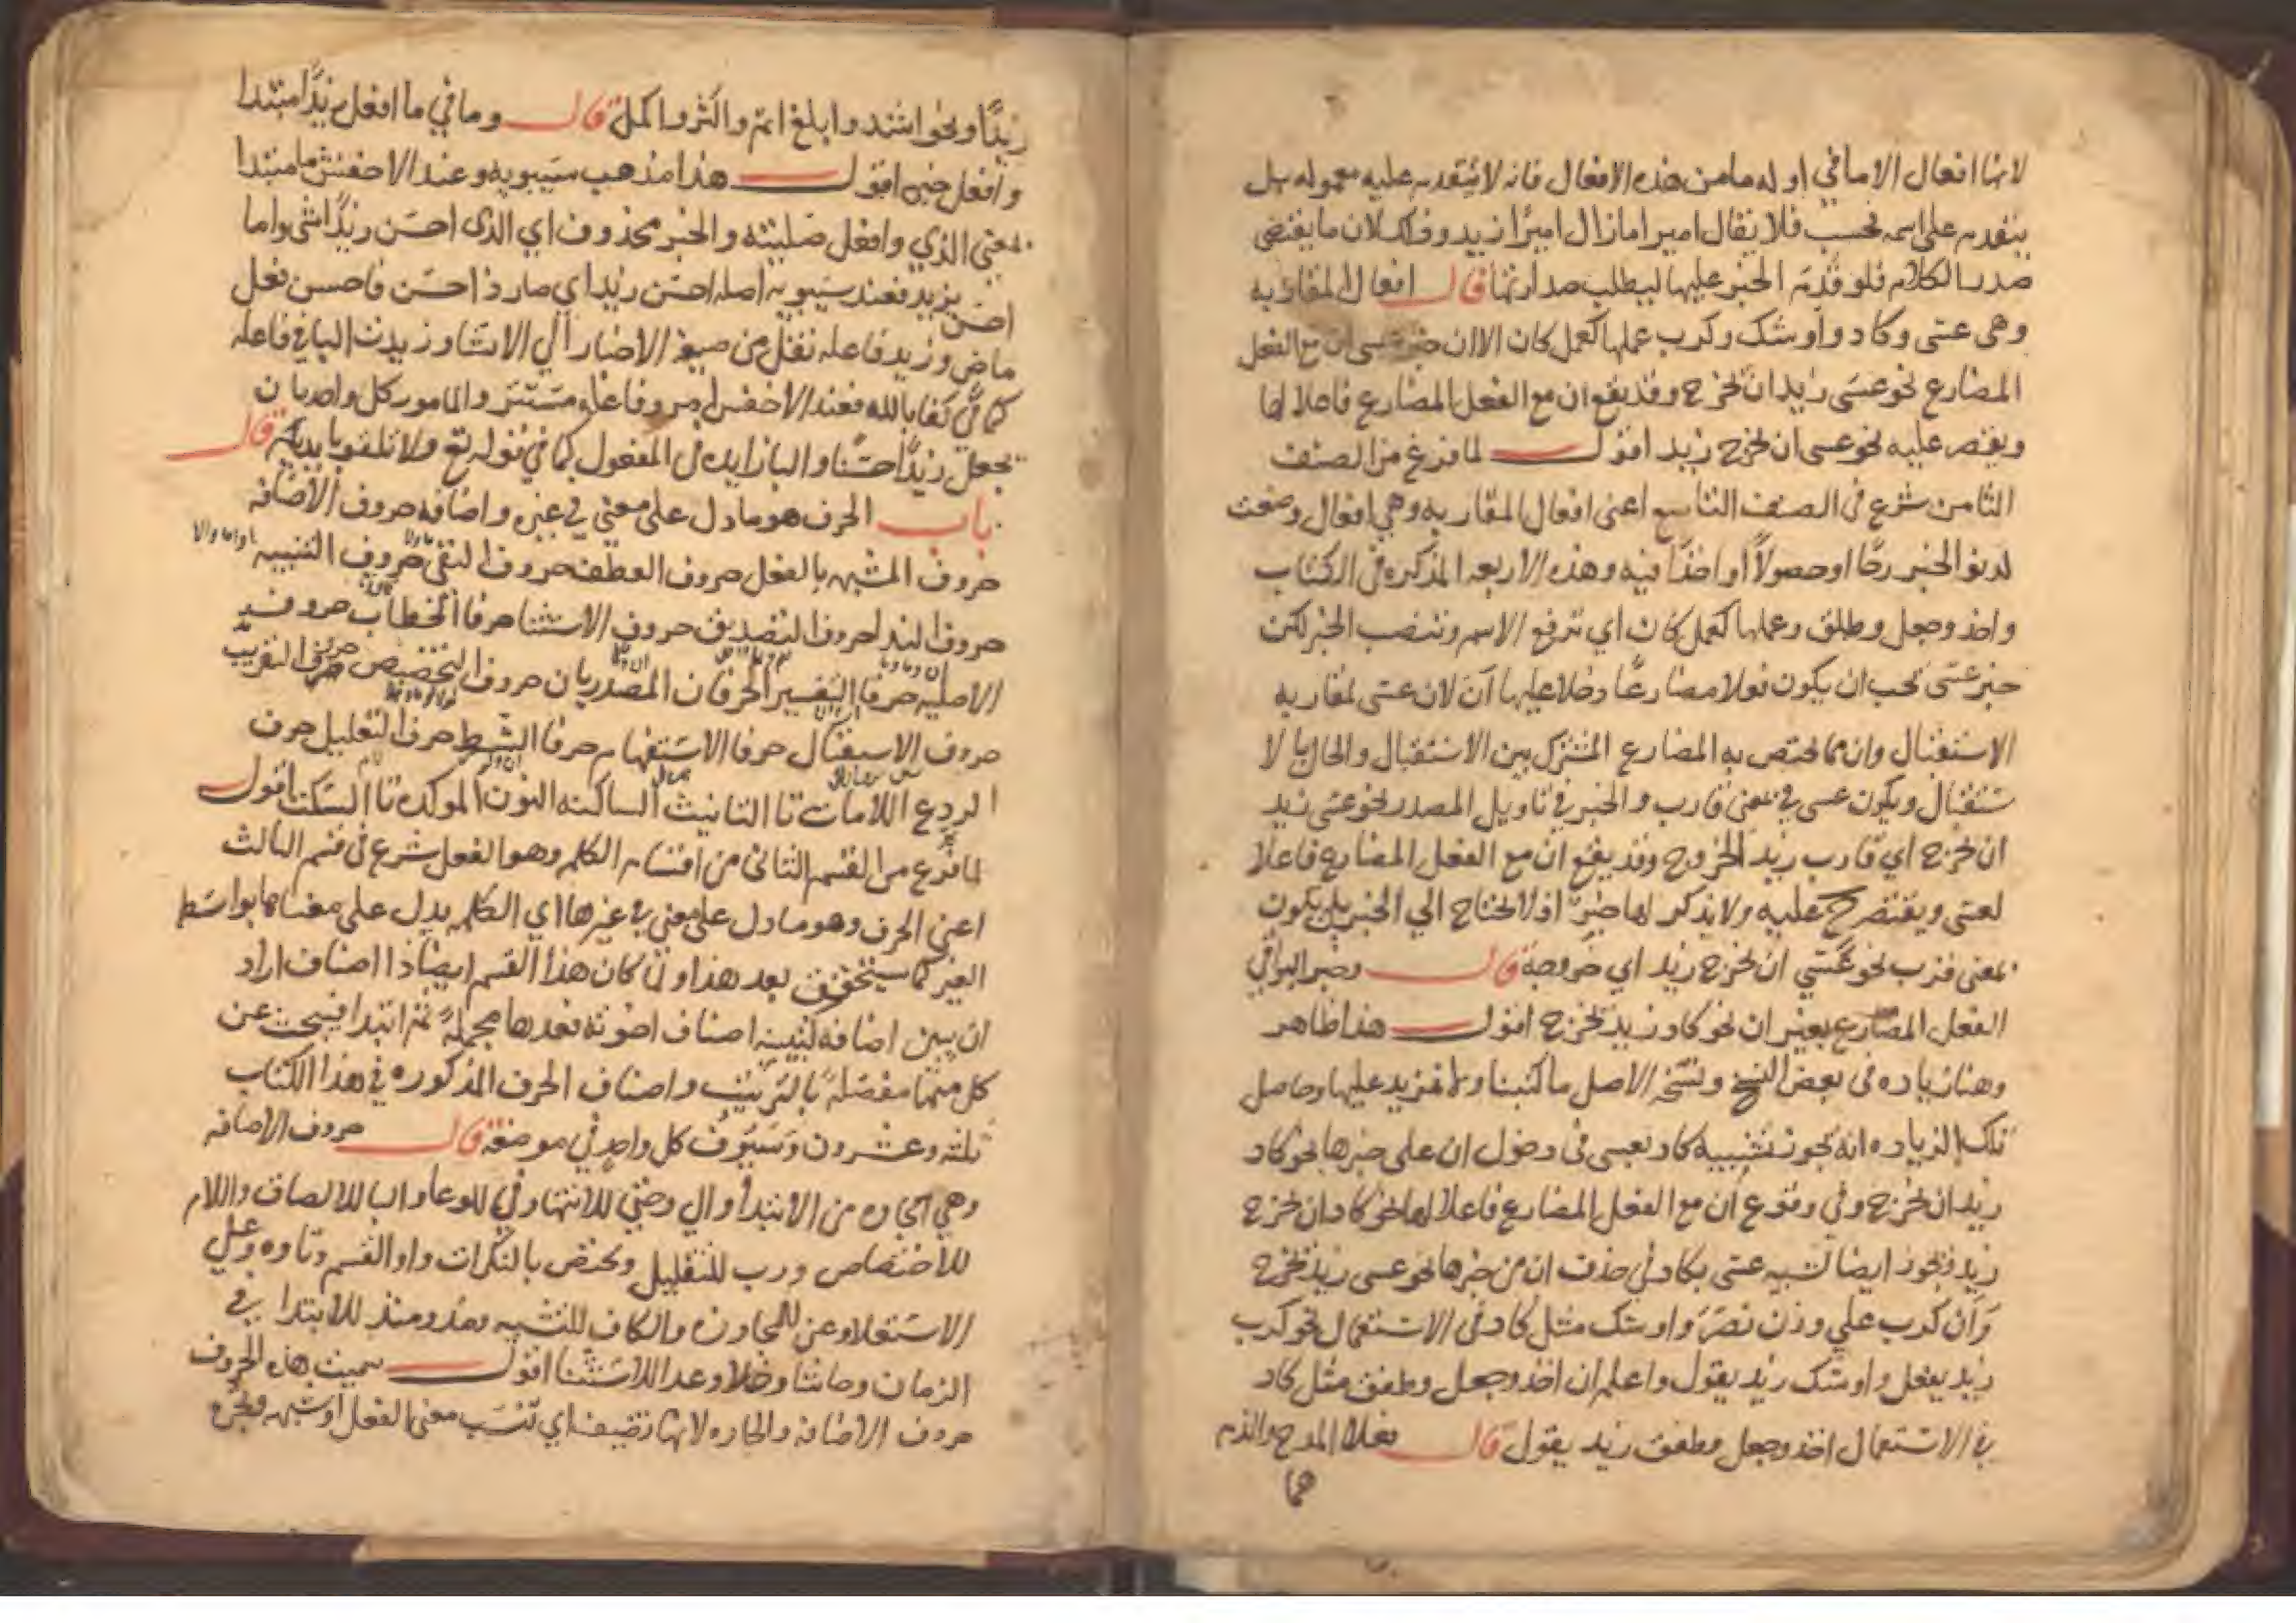 لانها افعال الا ما في اوله ما من هذه الافعال فانه لا يتقدم عليه معموله بل
يتقدم على اسمه فحسب فلا يقال اميرا مازال اميرا زيد وذلك لان ما يقتضى
صدر الكلام فلو قدم الخبر عليها ليبطل صدارتها قال افعال المقاربه
وهى عسى وكاد واوشك وكرب عملها كعمل كان الا ان خبر عسى ان مع الفعل
المضارع نحو عسى زيد ان يخرج وقد يقع ان مع الفعل المضارع فاعلا لها
ويقتصر عليه نحو عسى ان يخرج زيد اقول لما فرغ من الصنف
الثامن شرع فى الصنف التاسع اعنى افعال المقاربه وهي افعال وضعت
لدنو الخبر رجاً او حصولاً او اخذاً فيه وهذه الاربعه المذكره فى الكتاب
واخذ وجعل وطفق وعملها كعمل كان اي ترفع الاسم وتنصب الخبر لكن
خبر عسى يجب ان يكون فعلا مضارعًا دخلا عليها ان لان عسى لمقاربه
الاستقبال وان مما يختص به المضارع المشترك بين الاستقبال والحال با لا
ستقبال ويكون عسى في معنى قارب والخبر في تاويل المصدر نحو عسى زيد
ان يخرج اي قارب زيد الخروج وقد يقع ان مع الفعل المضارع فاعلا
لعسى ويقتصر ح عليه ولا يذكر لها خبر اذ لا يحتاج الي الخبر بل يكون
بمعنى قرب نحو عسي ان يخرج زيد اي خروجه قال وخبر البواقي
الفعل المضارع بغير ان نحو كاد زيد يخرج اقول هذا ظاهر
وهنا زياده فى بعض النسخ ونسخه الاصل ما كتبنا ولم نزيد عليها وحاصل
تلك الزياده انه يجوز تشبيه كاد بعسى فى دخول ان على خبرها نحو كاد
زيد ان يخرج وفي وقوع ان مع الفعل المضارع فاعلا لها نحو كاد ان يخرج
زيد ويجوز ايضا تشبيه عسى بكاد فى حذف ان من خبرها نحو عسى زيد يخرج
وان كرب علي وزن نصر واوشك مثل كاد فى الاستعمال نحو كرب
زيد يفعل واوشك زيد يقول واعلم ان اخذ وجعل وطفق مثل كاد
في الاستعمال اخذ وجعل وطفق زيد يقول قال فعلا المدح والذم
هما
زيداً ونحو اشد وابلغ اتم واكثر واكمل قال وما في ما افعل زيداً مبتدا
وافعل خبره اقول هذا مذهب سيبويه وعند الاخفش ما مبتدا
بمعنى الذي وافعل صلته والخبر محذوف اي الذى احسن زيداً شى واما
احسن بزيد فعند سيبويه اصله احسن زيد اي صار ذا حسن فاحسن فعل
ماض وزيد فاعله نقل من صيغة الاخبار الي الانشا وزيدت البا في فاعله
كما في كفا بالله فعند الاخفش امر وفاعله مستتر والمامور كل واحد بان
يجعل زيداً حسنا والبا زايده فى المفعول كما في قوله تع ولا تلقوا بايديكم قال
باب الحرف هو ما دل على معني في غيره واصنافه حروف الاضافه
حروف المشبه بالفعل حروف العطف حروف النفى حروف التنبيه
حروف الندا حروف التصديق حروف الاستثنا حرفا الخطاب حروف
الاصليه حرفا التفسير الحرفان المصدريان حروف التحضيض حرف التقريب
حروف الاستقبال حرفا الاستفهام حرفا الشرط حرف التعليل حرف
الردع اللامات تا التانيث الساكنه النون الموكده تا السكت اقول
لما فرغ من القسم الثانى من اقسام الكلمه وهو الفعل شرع فى قسم الثالث
اعنى الحرف وهو ما دل على معنى في غيرها اي الكلمه يدل على معناها بواسطه
الغير كما سيتحقق بعد هذا ولما كان هذا القسم ايضا ذا اصناف اراد
ان يبين اصنافه اصناف اخوته فعدها مجملة ثم ابتدا فيبحث عن
كل منها مفصلةً بالترتيب واصناف الحرف المذكوره في هذا الكتاب
ثلثه وعشرون وسيوف كل واحد في موضعه قال حروف الاضافه
وهي الجاره من الابتدا والي وحتي للانتها وفي للوعا والبا للالصاق واللام
للاختصاص ورب للتقليل ويختص بالنكرات واو القسم وتاوه وعلي
الاستعلا وعن للمجاوزه والكاف للتشبيه ومذ ومنذ للابتدا في
الزمان وحاشا وخلا وعدا للاستثنا اقول سميت هذه الحروف
حروف الاضافه والجاره لانها تضيف اي تنسب معنى الفعل او شبهه وتجر